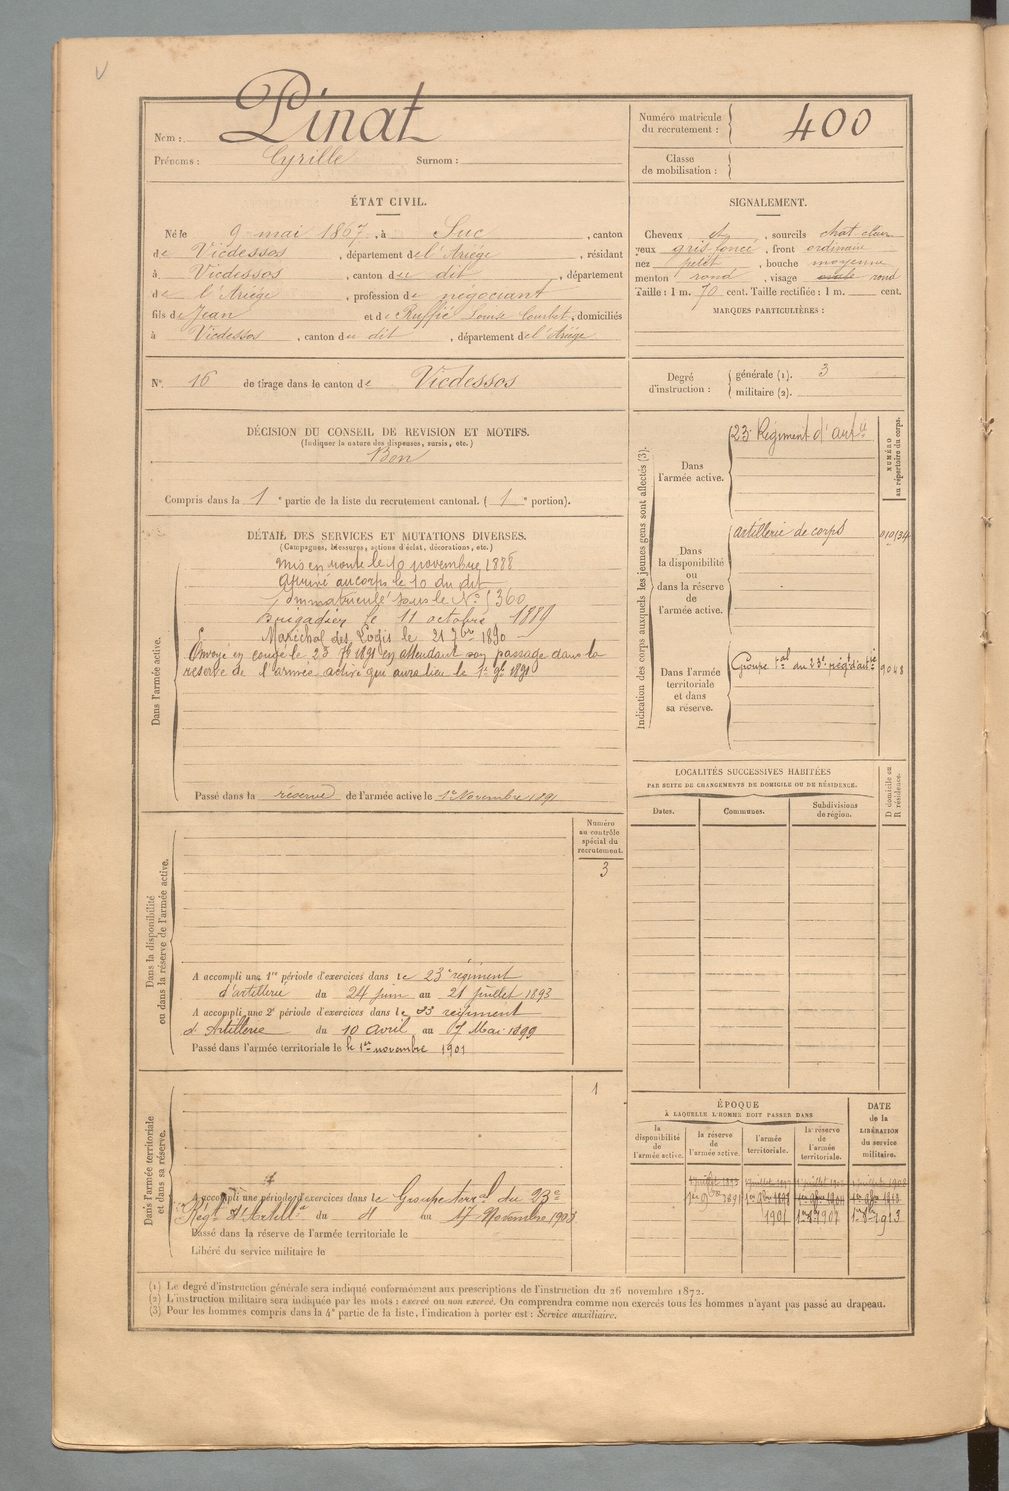 Nom : Pinat
Prénoms : Cyrille Surnom :
Numéro matricule du recrutement : 400
Classe de mobilisation :
ÉTAT CIVIL.
Né le 9 mai 1867, à Suc, canton
de Vicdessos, département de l'Ariège, résidant
à Vicdessos, canton du dit, département
de l'Ariège, profession de négociant
fils de Jean et de Ruffié Louise Courbet, domiciliés
à Vicdessos, canton du dit, département de l'Ariège
SIGNALEMENT.
Cheveux et, sourcils chat. clair
yeux gris foncé, front ordinaire
nez petit, bouche moyenne
menton rond, visage ovale rond
Taille : 1 m. 70 cent. Taille rectifiée : 1 m. cent.
MARQUES PARTICULIÈRES :
N° 16 de tirage dans le canton de Vicdessos
Degré d'instruction : générale (1). 3
militaire (2).
DÉCISION DU CONSEIL DE REVISION ET MOTIFS.
(Indiquer la nature des dispenses, sursis, etc.)
Bon
Compris dans la 1e partie de la liste du recrutement cantonal. (1e portion).
DÉTAIL DES SERVICES ET MUTATIONS DIVERSES.
(Campagnes, blessures, actions d'éclat, décorations, etc.)
Dans l'armée active.
Mis en route le 10 novembre 1888
Arrivé au corps le 10 du dit
Immatriculé sous le N° 1360
Brigadier le 11 octobre 1889
Maréchal des Logis le 21 7bre 1890
Envoyé en congé le 23 7bre 1891 en attendant son passage dans la
réserve de l'armée active qui aura lieu le 1er 9bre 1891
Passé dans la réserve de l'armée active le 1er Novembre 1891
Indication des corps auxquels les jeunes gens sont affectés (3).
NUMÉRO au répertoire du corps.
Dans l'armée active.
23e Régiment d'artie
Dans la disponibilité ou dans la réserve de l'armée active.
artillerie de corps
Dans l'armée territoriale et dans sa réserve.
Groupe tal du 23e régt d'artie 9048
LOCALITÉS SUCCESSIVES HABITÉES
PAR SUITE DE CHANGEMENTS DE DOMICILE OU DE RÉSIDENCE.
Dates. Communes. Subdivisions de région. D domicile ou R résidence.
Dans la disponibilité ou dans la réserve de l'armée active.
Numéro au contrôle spécial du recrutement.
3
A accompli une 1re période d'exercices dans le 23e régiment
d'artillerie du 24 juin au 21 juillet 1893
A accompli une 2e période d'exercices dans le 23 régiment
d'Artillerie du 10 avril au 7 Mai 1899
Passé dans l'armée territoriale le le 1er novembre 1901
Dans l'armée territoriale et dans sa réserve.
1
A accompli une période d'exercices dans le Groupe terral du 23e
Régt d'Artille du au 17 Novembre 1903
Passé dans la réserve de l'armée territoriale le
Libéré du service militaire le
ÉPOQUE
À LAQUELLE L'HOMME DOIT PASSER DANS
la disponibilité de l'armée active.
la réserve de l'armée active.
l'armée territoriale.
la réserve de l'armée territoriale.
DATE de la LIBÉRATION du service militaire.
1er 9bre 1891
1901
(1) Le degré d'instruction générale sera indiqué conformément aux prescriptions de l'instruction du 26 novembre 1872.
(2) L'instruction militaire sera indiquée par les mots : exercé ou non exercé. On comprendra comme non exercés tous les hommes n'ayant pas passé au drapeau.
(3) Pour les hommes compris dans la 4e partie de la liste, l'indication à porter est : Service auxiliaire.